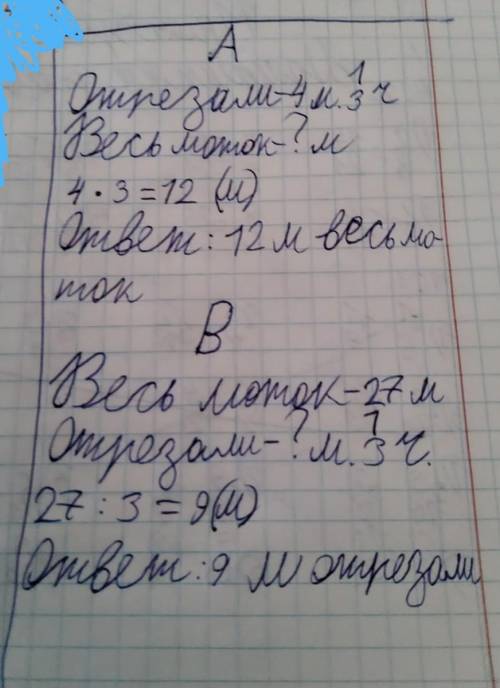 А
Отрезали-4м. 1/3 ч
Весь моток-? м
4 · 3 = 12 (м)
Ответ: 12 м весь мо-
ток
В
Весь моток-27 м
Отрезали-? м. 1/3 ч.
27 : 3 = 9 (м)
Ответ: 9 м отрезали